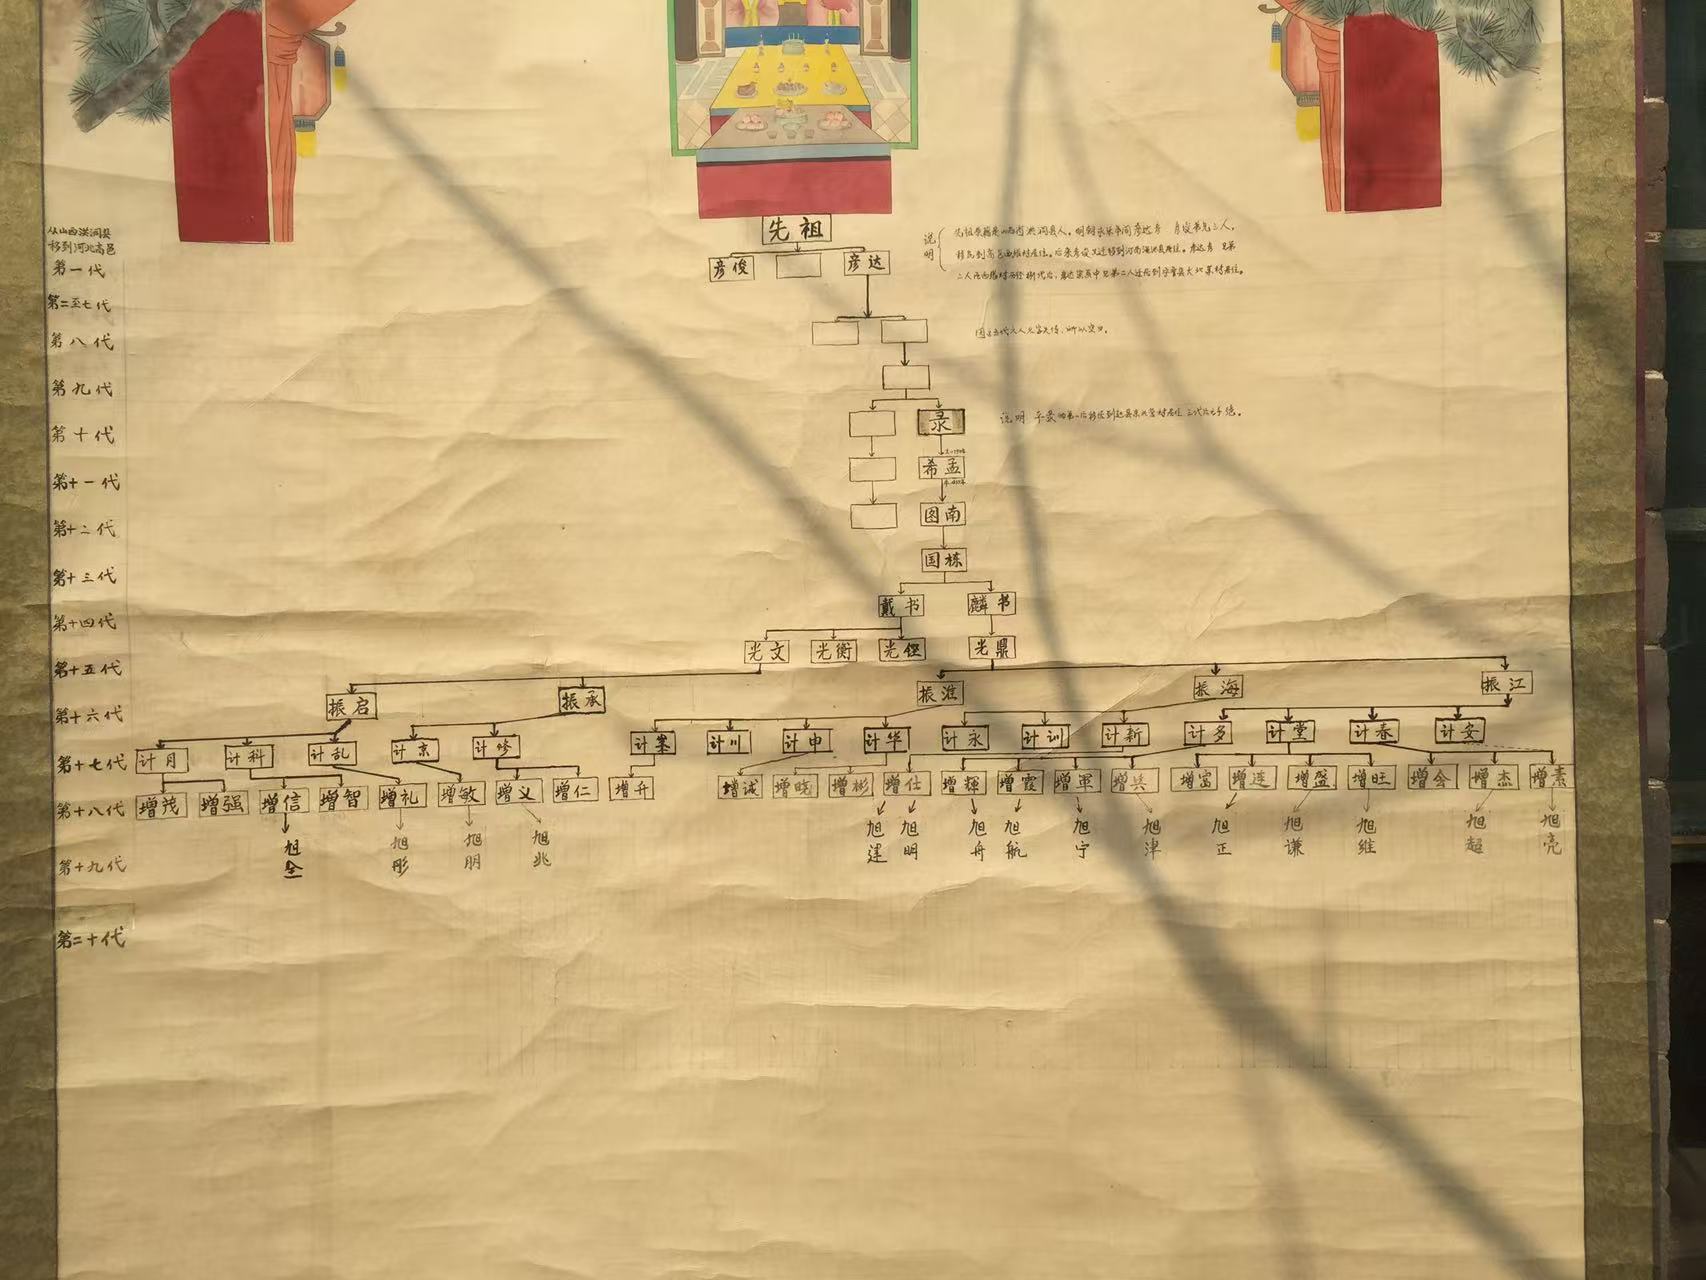 先祖
从山西洪洞县
移到河北高邑
第一代
彦俊 彦达
说明
先祖原籍是山西省洪洞县人,明朝永乐年间彦达 彦俊弟兄二人,
第二至七代
第八代
第九代
第十代
录
说明
第十一代
希孟
第十二代
图南
第十三代
国栋
第十四代
戴书 麟书
第十五代
光文 光衡 光 光鼎
第十六代
振启 振承 振淮 振海 振江
第十七代
计月 计科 计乱 计京 计修 计 计川 计申 计华 计永 计训 计新 计多 计堂 计春 计安
第十八代
增茂 增强 增信 增智 增礼 增敏 增义 增仁 增升 增诚 增晓 增彬 增仕 增辉 增霞 增軍 增兵 增富 增连 增盛 增旺 增会 增杰 增素
第十九代
旭全 旭彤 旭朋 旭兆 旭建 旭明 旭舟 旭航 旭宁 旭津 旭正 旭谦 旭维 旭超 旭亮
第二十代